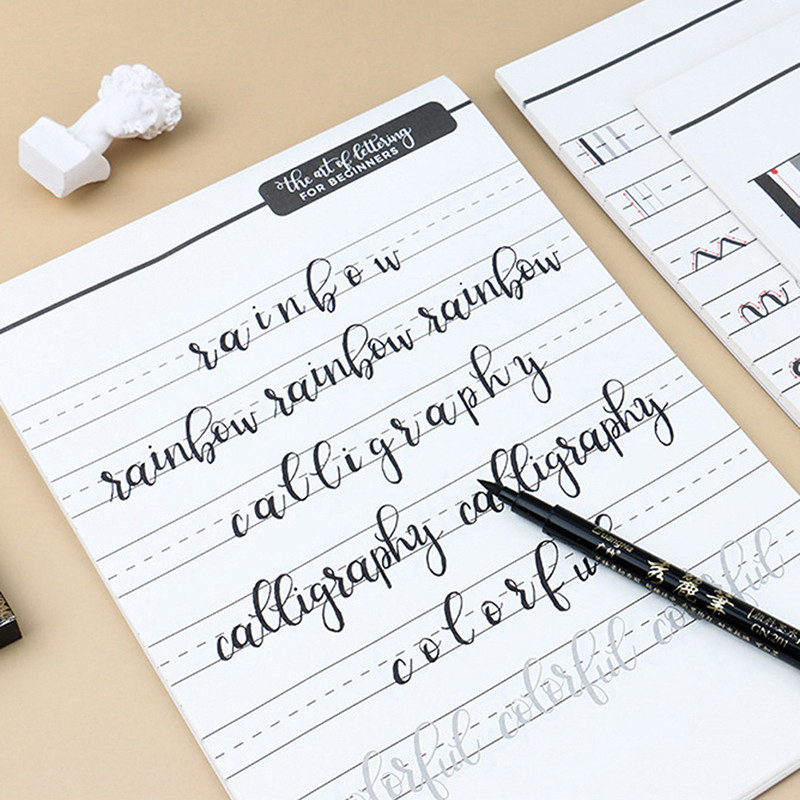 the art of lettering
FOR BEGINNERS
rainbow
rainbow rainbow rainbow
calligraphy
calligraphy calligraphy
colorful
colorful colorful colorful
GuangNa
秀麗筆
GN-201